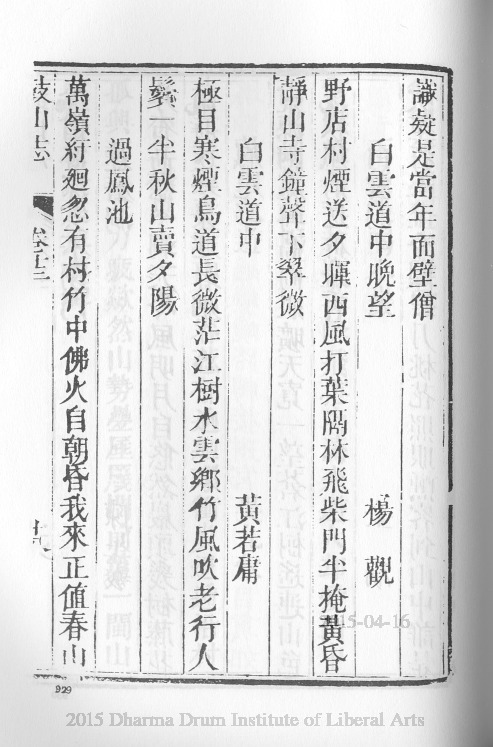 識疑是當年面壁僧
白雲道中晚望 楊觀
野店村煙送夕暉西風打葉隔林飛柴門半掩黃昏
靜山寺鐘聲下翠微
白雲道中 黃若庸
極目寒煙鳥道長微茫江樹水雲鄉竹風吹老行人
鬢一半秋山賣夕陽
過鳳池
萬嶺紆廻忽有村竹中佛火自朝昏我來正值春山
鼓山志 卷十三
929
2015-04-16
2015 Dharma Drum Institute of Liberal Arts